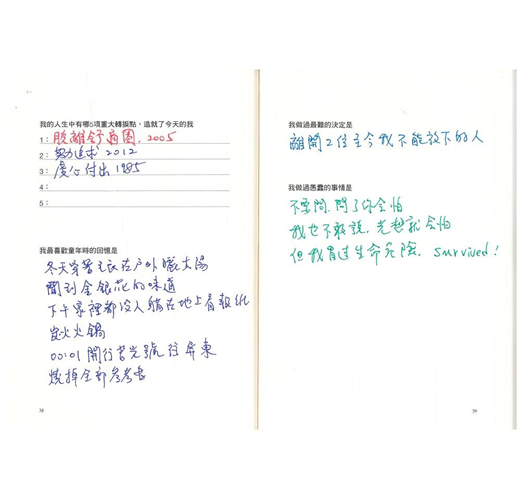 我的人生中有哪5項重大轉捩點，造就了今天的我
1: 脫離舒適圈. 2005
2: 努力追求 2012
3: 虔心付出 1985
4:
5:
我最喜歡童年時的回憶是
冬天穿著毛衣在戶外曬太陽
聞到金銀花的味道
下午家裡都沒人躺在地上看報紙
炭火火鍋
00:01 開往莒光號往屏東
燒掉全部參考書
38
我做過最難的決定是
離開2位至今我不能放下的人
我做過愚蠢的事情是
不要問.問了你会怕
我也不敢說.光想就会怕
但我冒过生命危險. survived!
39